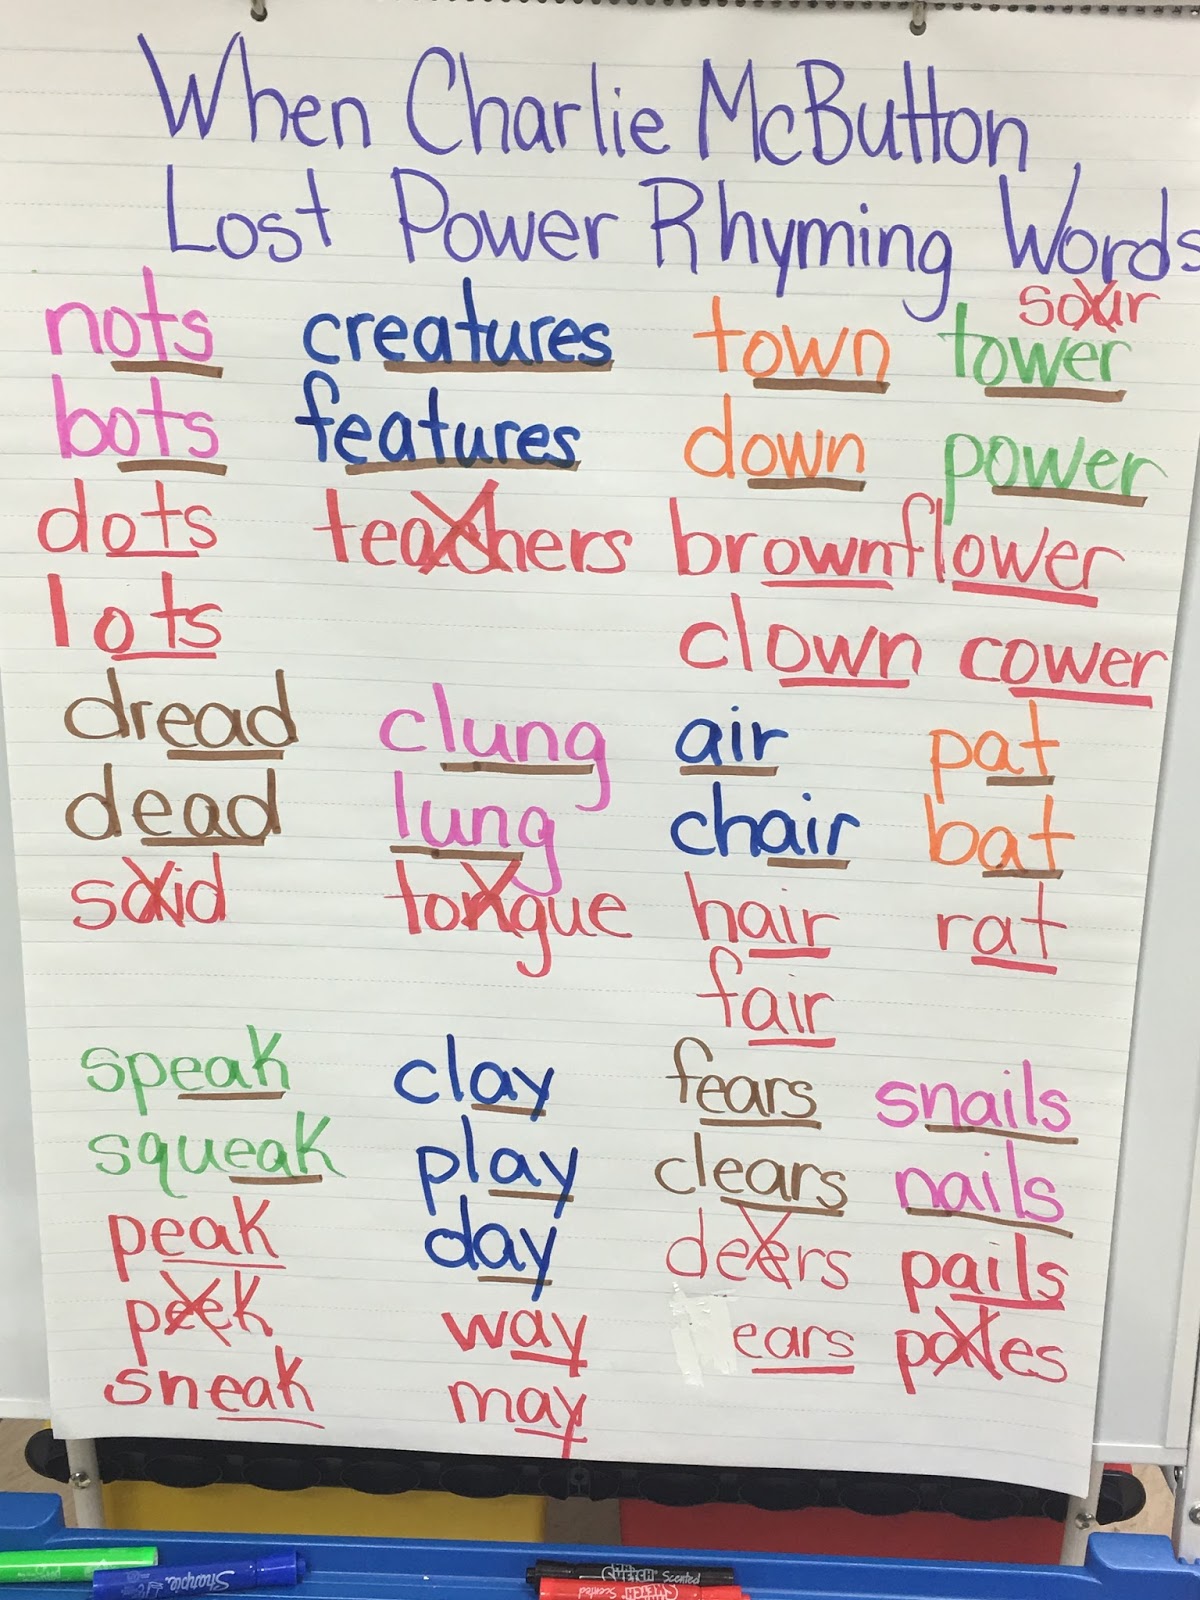 When Charlie McButton
Lost Power Rhyming Words
sour
nots creatures town tower
bots features down power
dots teachers brown flower
lots clown cower
dread clung air pat
dead lung chair bat
said tongue hair rat
fair
speak clay fears snails
squeak play clears nails
peak day deers pails
peek way ears pales
sneak may
Sharpie
Scented
Scented